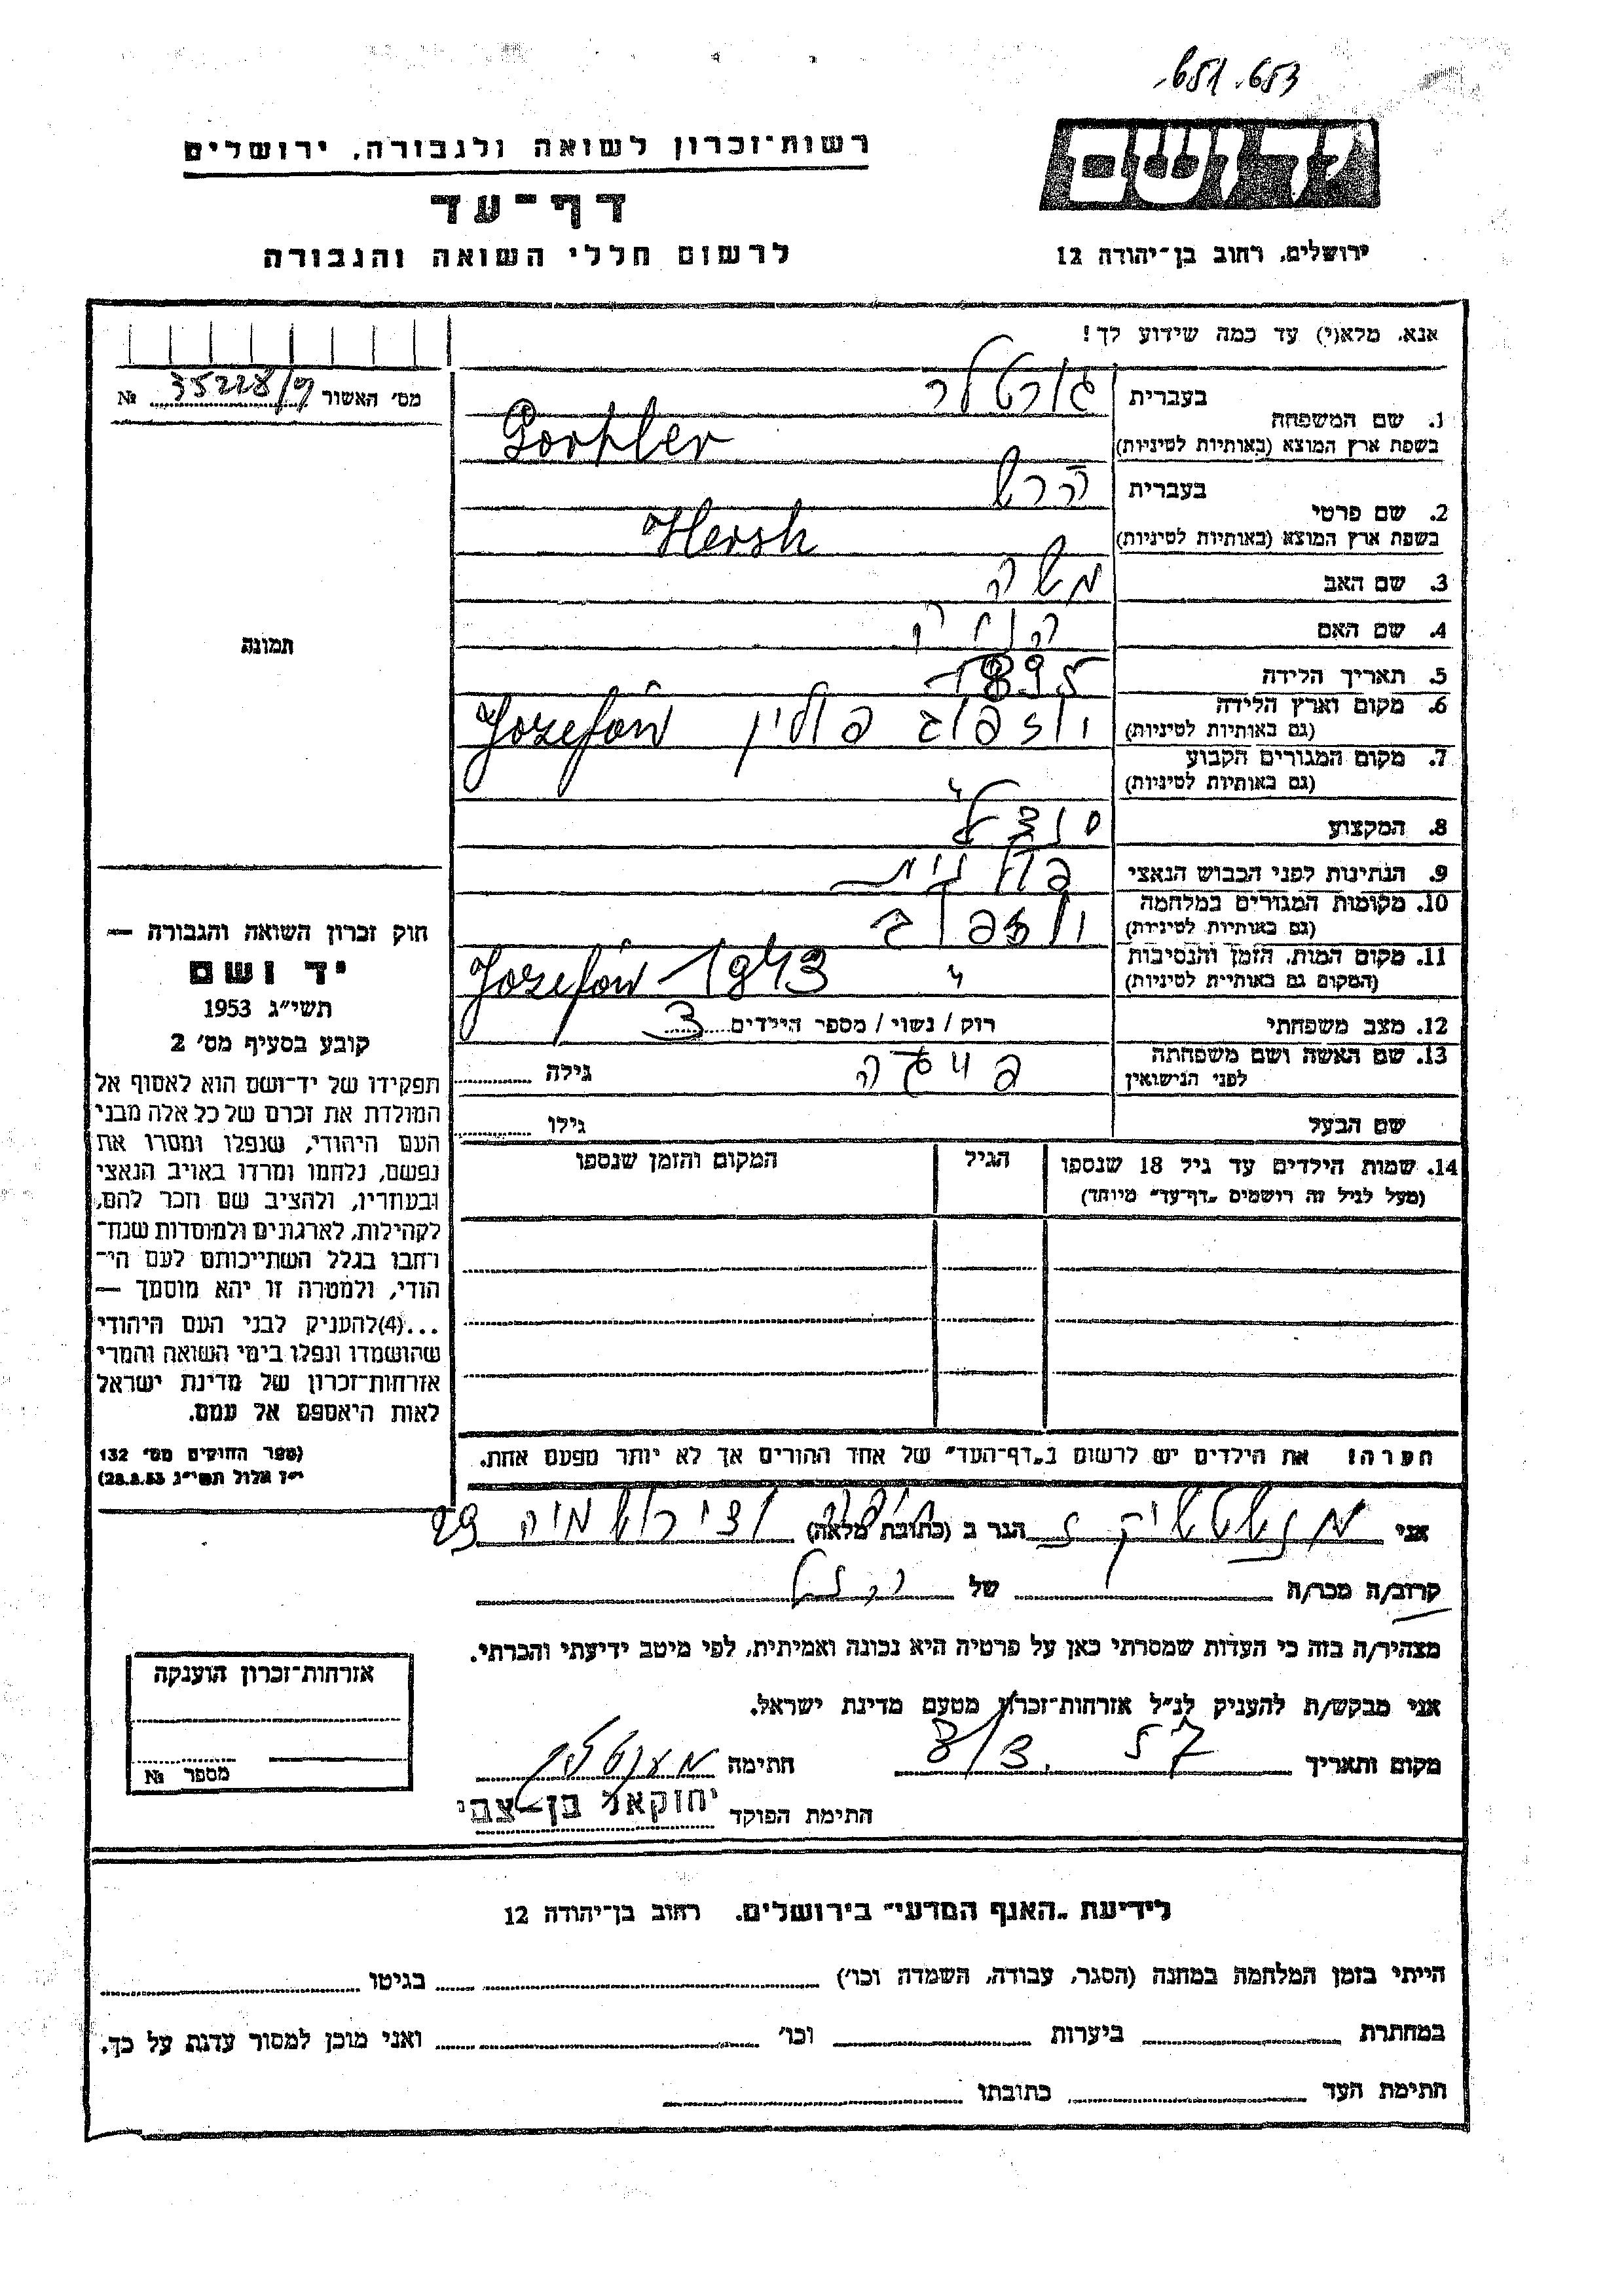 651. 653.
יד ושם
רשות־זכרון לשואה ולגבורה, ירושלים
דף־עד
לרשום חללי השואה והגבורה
ירושלים, רחוב בן־יהודה 12
אנא, מלא(י) עד כמה שידוע לך!
מס׳ האשור 35228/ №
1. שם המשפחה בעברית גורטלר
בשפת ארץ המוצא (באותיות לטיניות)
2. שם פרטי בעברית הרש
בשפת ארץ המוצא (באותיות לטיניות) Hersh
3. שם האב משה
4. שם האם
5. תאריך הלידה 1895
6. מקום וארץ הלידה (גם באותיות לטיניות) יוזפוב פולין Jozefów
7. מקום המגורים הקבוע (גם באותיות לטיניות) "
8. המקצוע
9. הנתינות לפני הכבוש הנאצי פולנית
10. מקומות המגורים במלחמה (גם באותיות לטיניות) יוזפוב
11. מקום המות, הזמן והנסיבות (המקום גם באותיות לטיניות) " Jozefów 1943
12. מצב משפחתי רוק / נשוי / מספר הילדים 3
13. שם האשה ושם משפחתה לפני הנישואין גילה
שם הבעל גילו
14. שמות הילדים עד גיל 18 שנספו הגיל המקום והזמן שנספו
(מעל לגיל זה רושמים „דף־עד" מיוחד)
הערה: את הילדים יש לרשום ב„דף־העד" של אחד ההורים אך לא יותר מפעם אחת.
תמונה
חוק זכרון השואה והגבורה —
יד ושם
תשי״ג 1953
קובע בסעיף מס׳ 2
תפקידו של יד־ושם הוא לאסוף אל
המולדת את זכרם של כל אלה מבני
העם היהודי, שנפלו ומסרו את
נפשם, נלחמו ומרדו באויב הנאצי
ובעוזריו, ולהציב שם וזכר להם,
לקהילות, לארגונים ולמוסדות שנח־
רחבו בגלל השתייכותם לעם הי־
הודי, ולמטרה זו יהא מוסמך —
...(4)להעניק לבני העם היהודי
שהושמדו ונפלו בימי השואה והמרי
אזרחות־זכרון של מדינת ישראל
לאות היאספם אל עמם.
(ספר החוקים מס׳ 132
י״ז אלול תשי״ג 28.8.53)
אני הגר ב (כתובת מלאה) 29
קרוב/ה מכר/ה של
מצהיר/ה בזה כי העדות שמסרתי כאן על פרטיה היא נכונה ואמיתית, לפי מיטב ידיעתי והכרתי.
אני מבקש/ת להעניק לנ״ל אזרחות־זכרון מטעם מדינת ישראל.
מקום ותאריך 8/3. 57 חתימה
חתימת הפוקד יחזקאל בן־צבי
אזרחות־זכרון הוענקה
מספר №
לידיעת „האגף המדעי" בירושלים, רחוב בן־יהודה 12
הייתי בזמן המלחמה במחנה (הסגר, עבודה, השמדה וכו׳) בגיטו
במחתרת ביערות וכו׳ ואני מוכן למסור עדות על כך.
חתימת העד כתובתו